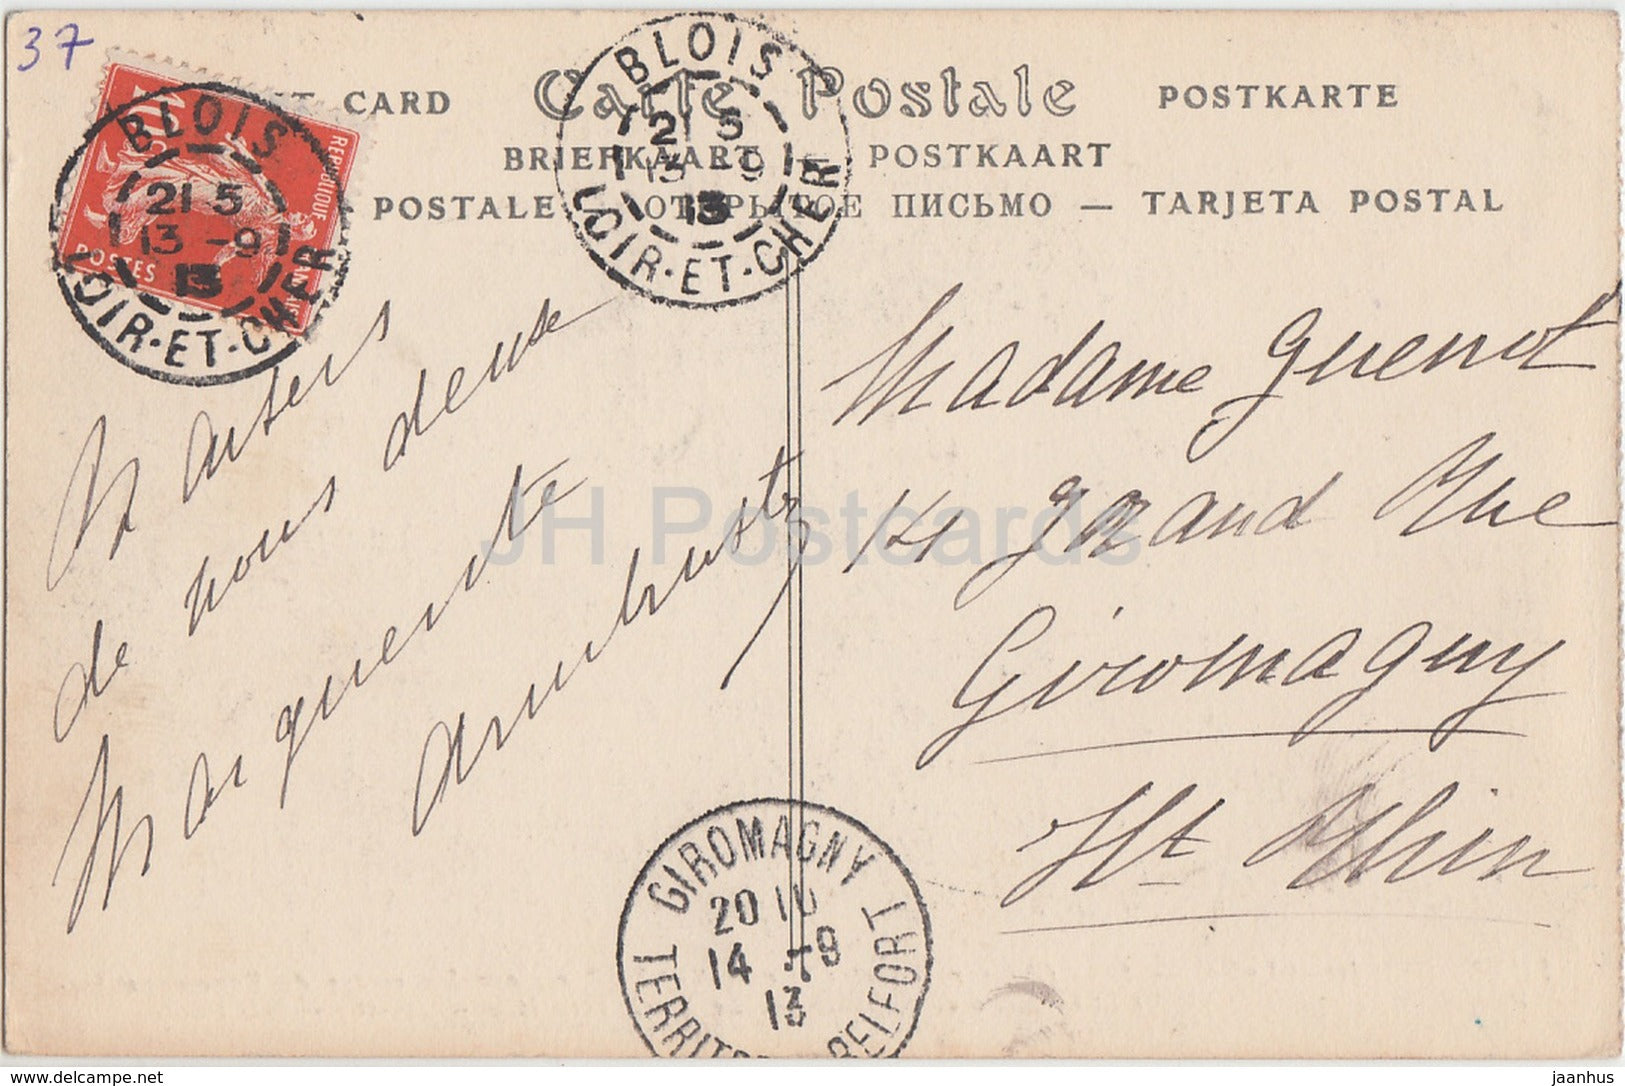 37
CARD Carte Postale POSTKARTE
BRIEFKAART — POSTKAART
POSTALE — ОТКРЫТОЕ ПИСЬМО — TARJETA POSTAL
10c
REPUBLIQUE FRANÇAISE
POSTES
BLOIS
21 5
13 -9
13
LOIR-ET-CHER
BLOIS
21 5
13 -9
13
LOIR-ET-CHER
de nous deux
Marguerite
Madame Guenot
Grand Rue
Giromagny
Ht Rhin
GIROMAGNY
20 10
14 -9
13
TERRIT BELFORT
JH Postcards
delcampe.net
jaanhus